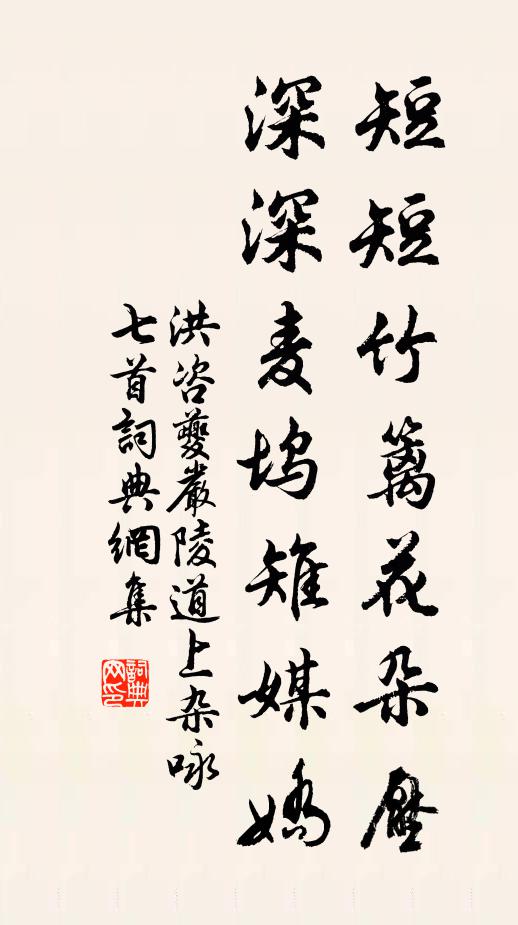 短短竹篱花朵壓
深深麦坞雉媒嬌
洪咨夔嚴陵道上杂咏
七首詞典網集
詞典网印